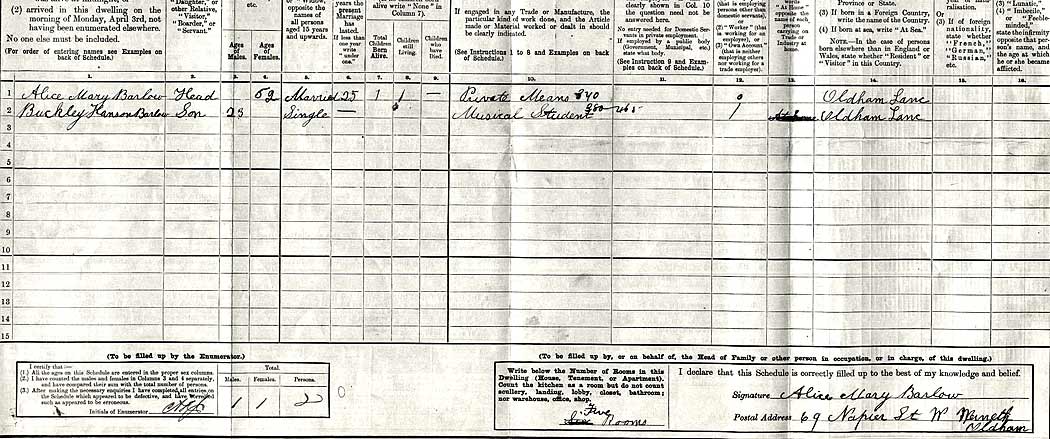 (2) arrived in this dwelling on the morning of Monday, April 3rd, not having been enumerated elsewhere.
No one else must be included.
(For order of entering names see Examples on back of Schedule.)
"Daughter," or other Relative, "Visitor," "Boarder," or "Servant."
etc.
Ages of Males.
Ages of Females.
"Widow,"
opposite the names of all persons aged 15 years and upwards.
years the present Marriage has lasted.
If less than one year write "under one."
alive write "None" in Column 7).
Total Children Born Alive.
Children still Living.
Children who have Died.
If engaged in any Trade or Manufacture, the particular kind of work done, and the Article made or Material worked or dealt in should be clearly indicated.
(See Instructions 1 to 8 and Examples on back of Schedule.)
clearly shown in Col. 10 the question need not be answered here.
No entry needed for Domestic Servants in private employment.
If employed by a public body (Government, Municipal, etc.) state what body.
(See Instruction 9 and Examples on back of Schedule.)
(that is employing persons other than domestic servants),
(2) "Worker" (that is working for an employer), or
(3) "Own Account" (that is neither employing others nor working for a trade employer).
"At Home" opposite the name of each person carrying on Trade or Industry at
Province or State.
(3) If born in a Foreign Country, write the name of the Country.
(4) If born at sea, write "At Sea."
NOTE.—In the case of persons born elsewhere than in England or Wales, state whether "Resident" or "Visitor" in this Country.
(3) If of foreign nationality, state whether "French," "German," "Russian," etc.
(2) "Lunatic,"
(3) "Imbecile," or "Feeble-minded,"
state the infirmity opposite that person's name, and the age at which he or she became afflicted.
1. 2. 3. 4. 5. 6. 7. 8. 9. 10. 11. 12. 13. 14. 15. 16.
1 Alice Mary Barlow Head 52 Married 25 1 1 — Private Means 840 0 Oldham Lanc
2 Buckley Hanson Barlow Son 23 Single — Musical Student 1 Oldham Lanc
3
4
5
6
7
8
9
10
11
12
13
14
15
(To be filled up by the Enumerator.)
I certify that:—
(1.) All the ages on this Schedule are entered in the proper sex columns.
(2.) I have counted the males and females in Columns 3 and 4 separately, and have compared their sum with the total number of persons.
(3.) After making the necessary enquiries I have completed all entries on the Schedule which appeared to be defective, and have corrected such as appeared to be erroneous.
Initials of Enumerator
Total.
Males. Females. Persons.
1 1 2
0
(To be filled up by, or on behalf of, the Head of Family or other person in occupation, or in charge, of this dwelling.)
Write below the Number of Rooms in this Dwelling (House, Tenement, or Apartment). Count the kitchen as a room but do not count scullery, landing, lobby, closet, bathroom; nor warehouse, office, shop.
Five
Six Rooms
I declare that this Schedule is correctly filled up to the best of my knowledge and belief.
Signature Alice Mary Barlow
Postal Address 69 Napier St W Werneth
Oldham